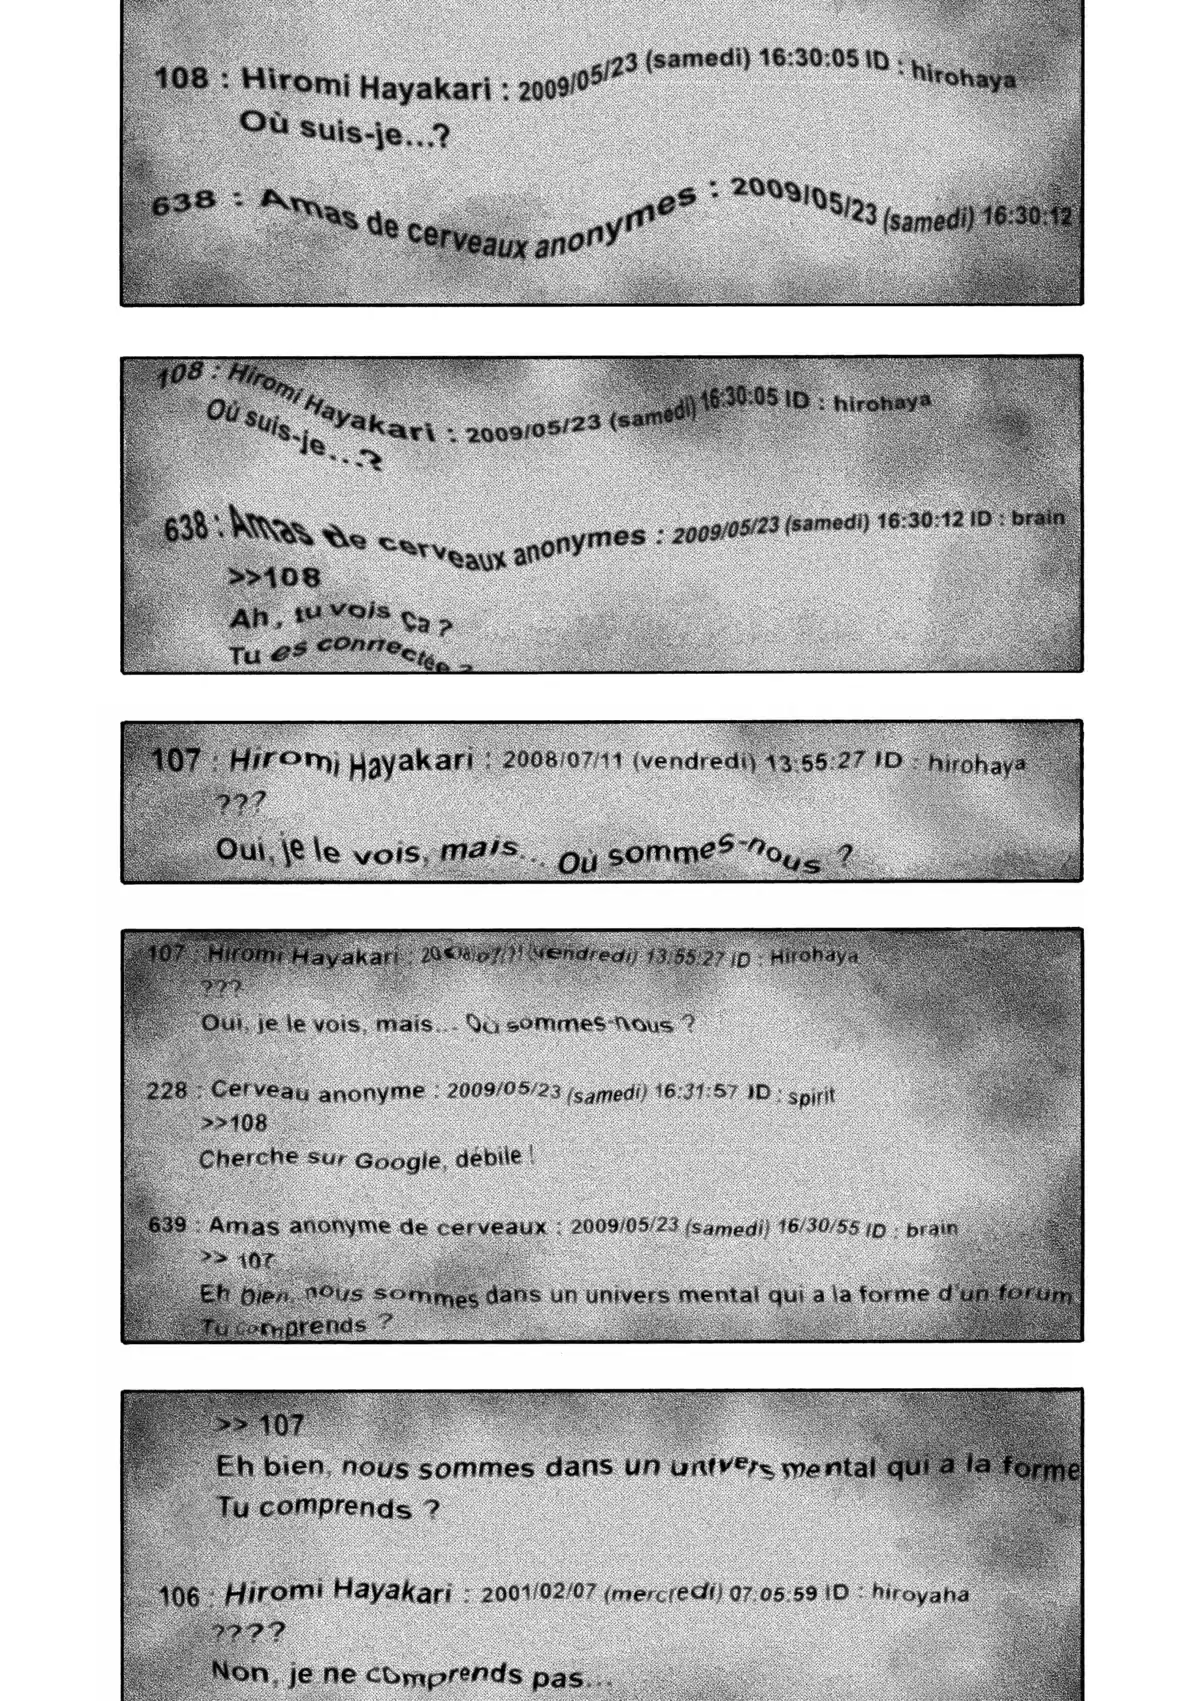 108 : Hiromi Hayakari : 2009/05/23 (samedi) 16:30:05 ID : hirohaya
Où suis-je...?
638 : Amas de cerveaux anonymes : 2009/05/23 (samedi) 16:30:12
108 : Hiromi Hayakari : 2009/05/23 (samedi) 16:30:05 ID : hirohaya
Où suis-je...?
638 : Amas de cerveaux anonymes : 2009/05/23 (samedi) 16:30:12 ID : brain
>>108
Ah, tu vois ça ?
Tu es connectée ?
107 : Hiromi Hayakari : 2008/07/11 (vendredi) 13:55:27 ID : hirohaya
???
Oui, je le vois, mais... Où sommes-nous ?
107 : Hiromi Hayakari : 2008/07/11 (vendredi) 13:55:27 ID : Hirohaya
???
Oui, je le vois, mais... Où sommes-nous ?
228 : Cerveau anonyme : 2009/05/23 (samedi) 16:31:57 ID : spirit
>>108
Cherche sur Google, débile !
639 : Amas anonyme de cerveaux : 2009/05/23 (samedi) 16/30/55 ID : brain
>> 107
Eh bien, nous sommes dans un univers mental qui a la forme d'un forum
Tu comprends ?
>> 107
Eh bien, nous sommes dans un univers mental qui a la forme
Tu comprends ?
106 : Hiromi Hayakari : 2001/02/07 (mercredi) 07:05:59 ID : hiroyaha
????
Non, je ne comprends pas...